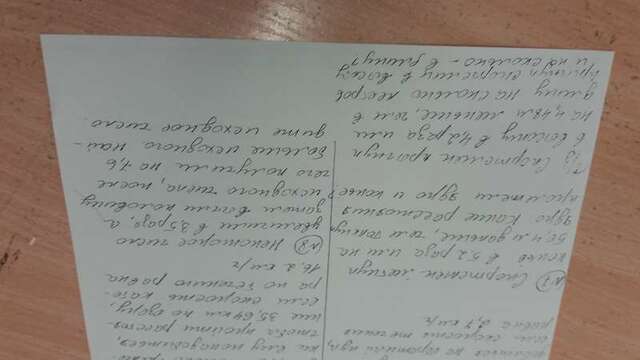 на обратный путь,
если скорость течения
равна 2,7 км/ч
№7 Спортсмен метнул
копьё в 5,2 раза или на
50,4 м дальше, чем толкнул
ядро. Какие расстояния
пролетели ядро и копьё?
Т/з Спортсмен прыгнул
в высоту в 4,2 раза или
на 4,48 м меньше, чем в
длину на сколько метров
прыгнул спортсмен в высоту
и на сколько - в длину?
ни ему понадобиться,
чтобы пройти расстоя-
ние 35,64 км по озеру,
если скорость кате-
ра по течению равна
16,2 км/ч
№8 Некоторое число
увеличили в 3,5 раза, а
затем вычли половину
исходного числа, после
чего получили на 7,6
больше исходного. Най-
дите исходное число.